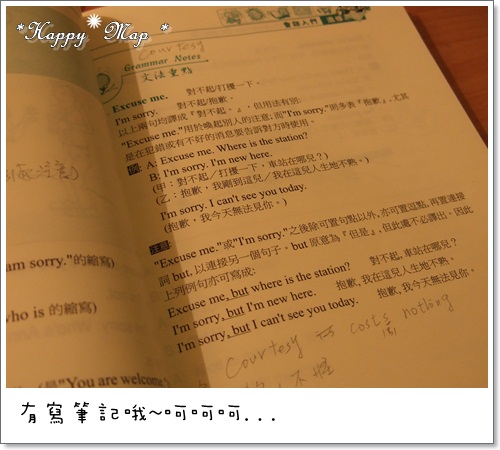 *Happy*Map*
會話入門
Courtesy
Grammar Notes
文法重點
Excuse me. 對不起/打擾一下。
I'm sorry. 對不起/抱歉。
以上兩句均譯成『對不起。』,但用法有別:
"Excuse me."用於喚起別人的注意;而"I'm sorry."則多表『抱歉』,尤其
是在犯錯或有不好的消息要告訴對方時使用。
例: A: Excuse me. Where is the station?
B: I'm sorry. I'm new here.
(甲:對不起/打擾一下,車站在哪兒?)
(乙:抱歉,我剛到這兒/我在這兒人生地不熟。)
I'm sorry. I can't see you today.
(抱歉,我今天無法見你。)
注意:
"Excuse me."或"I'm sorry."之後除可置句點以外,亦可置逗點,再置連接
詞 but, 以連接另一個句子。but 原意為『但是』,但此處不必譯出。因此
上列例句亦可寫成:
Excuse me, but where is the station? 對不起,車站在哪兒?
I'm sorry, but I'm new here. 抱歉,我在這兒人生地不熟。
I'm sorry, but I can't see you today. 抱歉,我今天無法見你。
Courtesy costs nothing
注意)
am sorry."的縮寫)
who is 的縮寫)
"You are welcome
有寫筆記哦~呵呵呵...